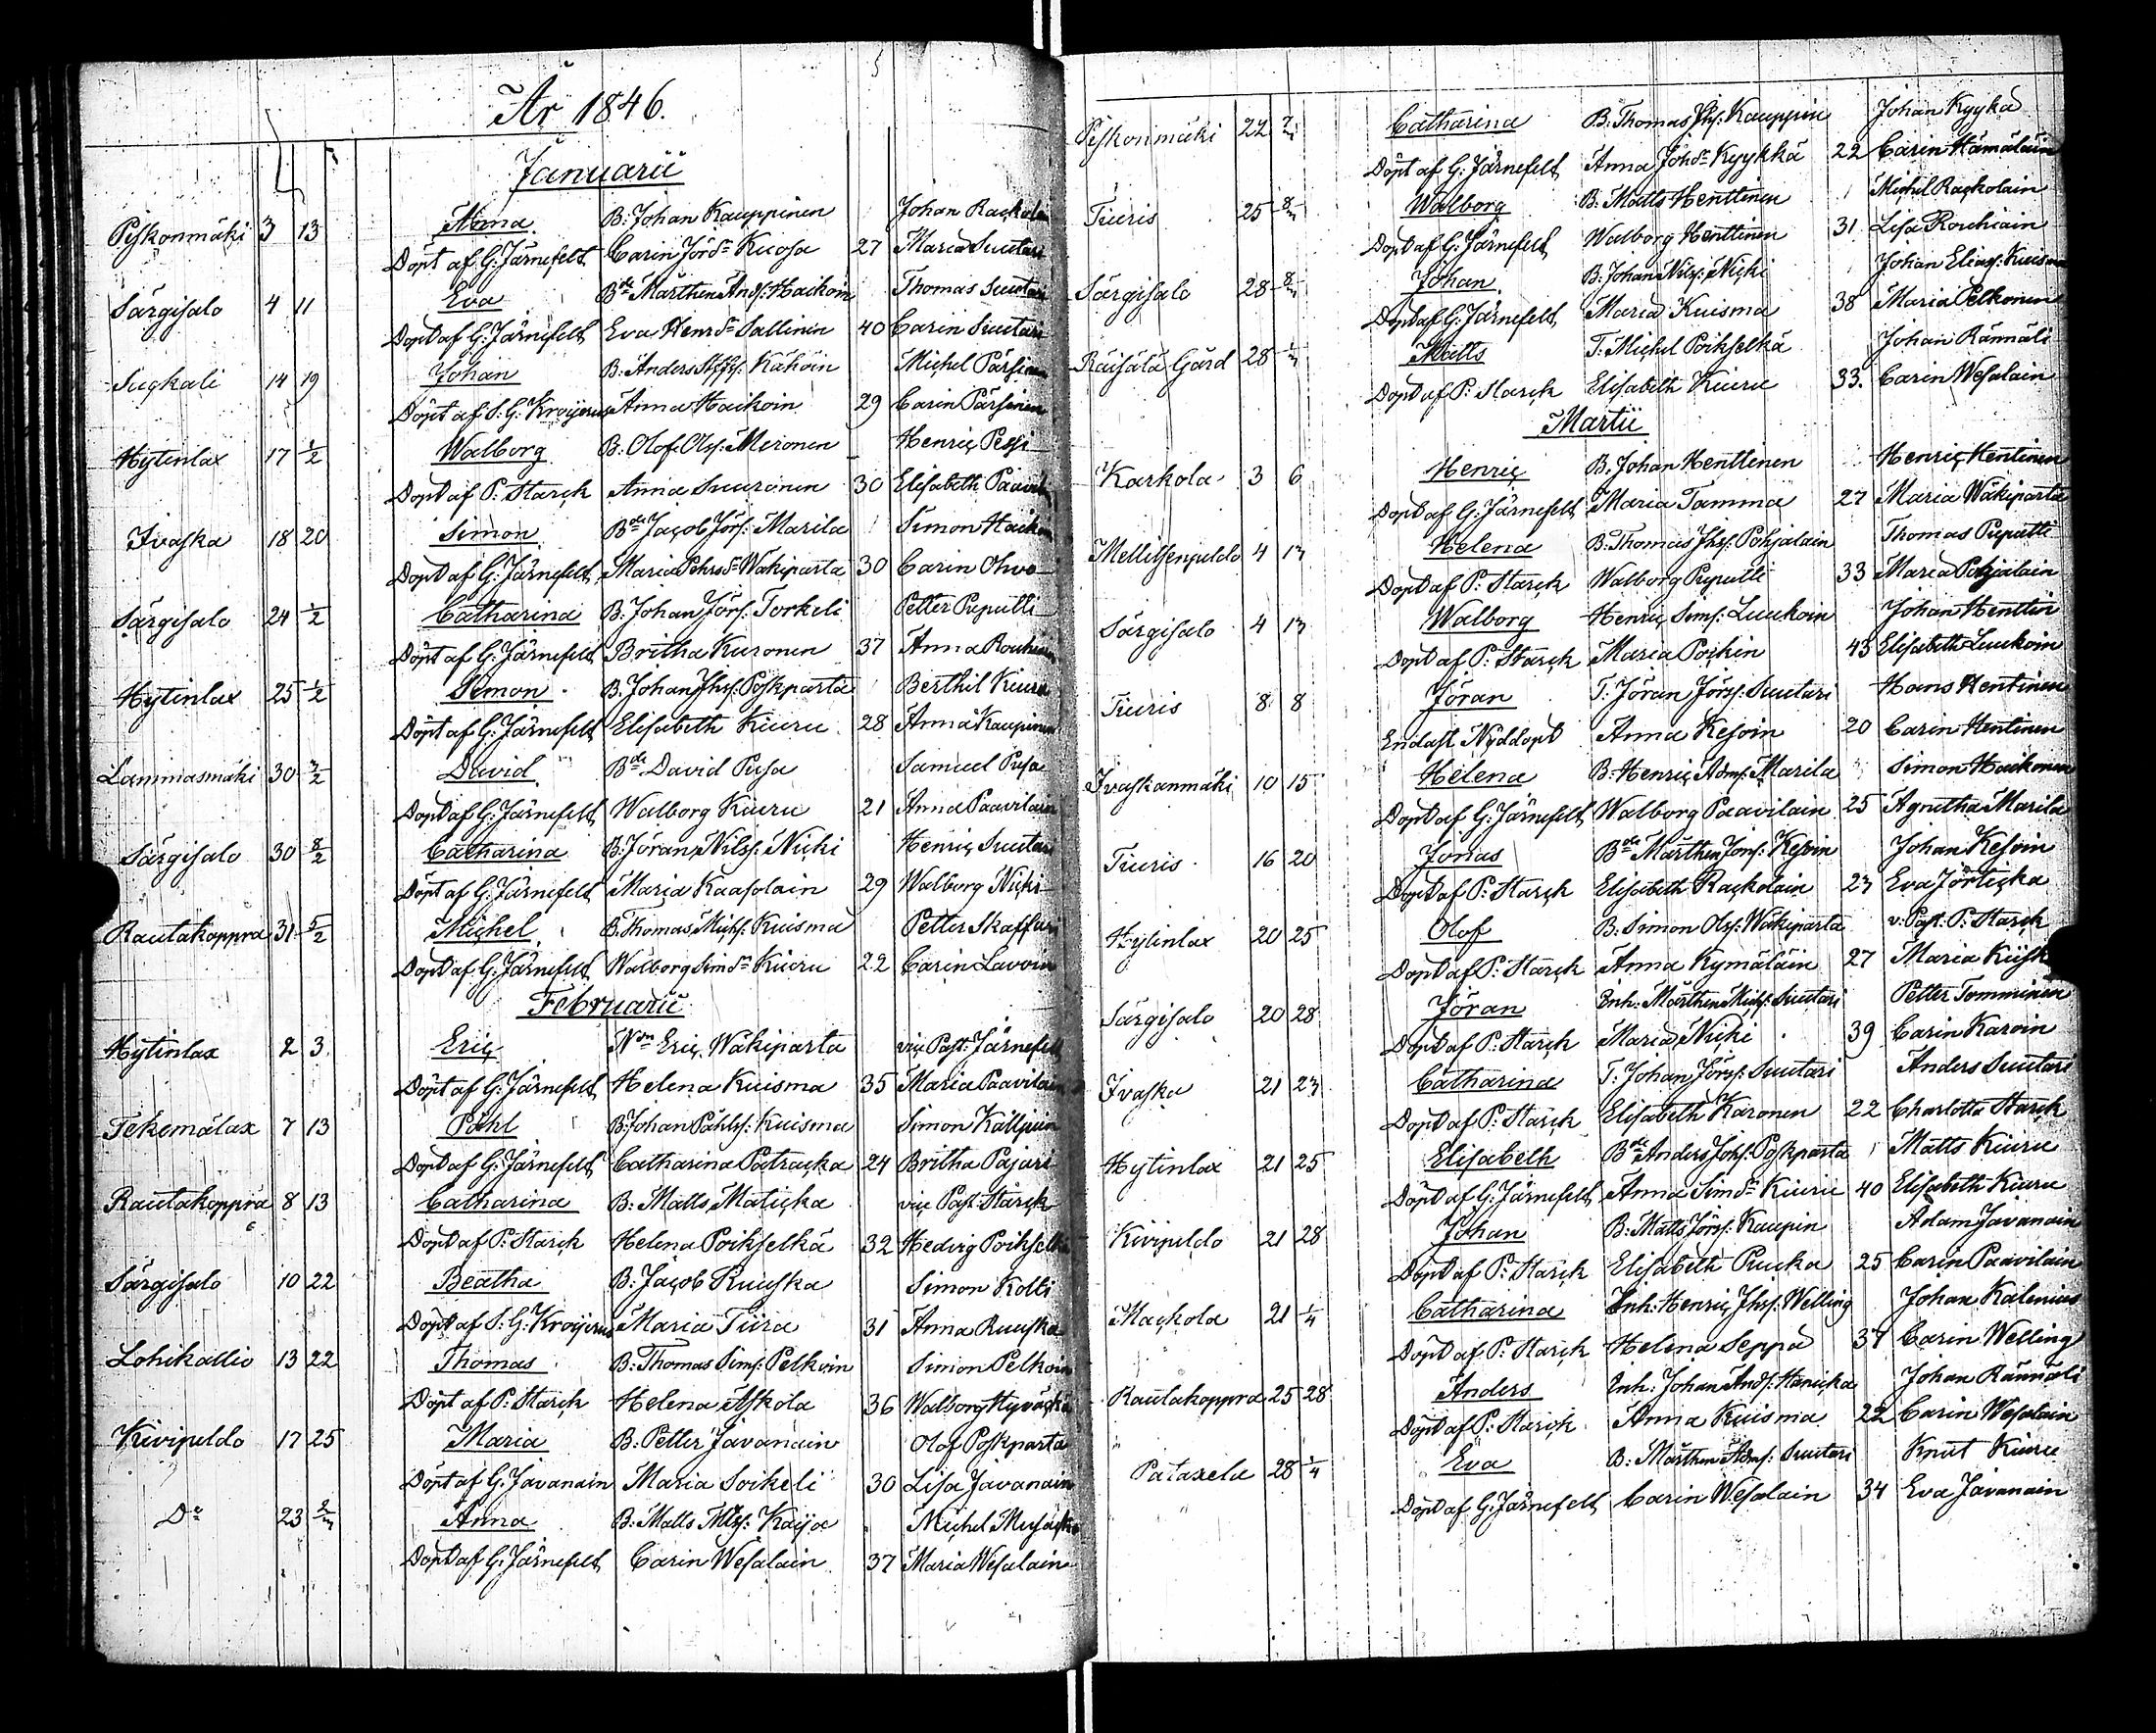 År 1846.
Januarii
Piskonmäki 3 13 Anna B: Johan Kauppinen Johan Rackolain
Döpt af G: Järnefelt Carin Jörsdr Kuosa 27 Maria Suutari
Särgisalo 4 11 Eva Bde Mårthen Ands: Haikoin Thomas Suutari
Döpt af G: Järnefelt Eva Henrsdr Sallinin 40 Carin Suutari
Sugkali 14 19 Johan B: Anders Kähöin Michel Pärsinen
Döpt af S. G: Kroijerus Anna Haikoin 29 Carin Pärsinen
Hytinlax 17 1/2 Walborg B: Olof Ols: Meronen Henric Pessi
Döpt af P: Starck Anna Suuronen 30 Elisabeth Paavil
Ivaska 18 20 Simon Bde Jacob Jörs: Marila Simon Haikon
Döpt af G: Järnefelt Maria Pehrsdr Wäkiparta 30 Carin Ohvo
Särgisalo 24 1/2 Catharina B: Johan Jörs: Torkeli Petter Puputti
Döpt af G: Järnefelt Britha Kuronen 37 Anna Rouhiain
Hytinlax 25 1/2 Simon B. Johan Jhs: Poskparta Berthil Kiuru
Döpt af G: Järnefelt Elisabeth Kiuru 28 Anna Kaupinen
Lammasmäki 30 3/2 David Bde David Pusa Samuel Pusa
Döpt af G: Järnefelt Walborg Kiuru 21 Anna Paavilain
Särgisalo 30 8/2 Catharina B. Jöran Nilss: Nicki Henric Suutari
Döpt af G: Järnefelt Maria Kaasolain 29 Walborg Nicki
Rautakoppra 31 5/2 Michel B. Thomas Michs: Kuisma Petter Skaffari
Döpt af G: Järnefelt Walborg Simsdr Kiuru 22 Carin Lavoin
Februarii
Hytinlax 2 3. Eric Ndn Eric Wäkiparta vic Past: Järnefelt
Döpt af G: Järnefelt Helena Kuisma 35 Maria Paavilain
Tekemälax 7 13 Påhl B: Johan Påhls: Kuisma Simon Källjuin
Döpt af G: Järnefelt Catharina Patracka 24 Britha Pajari
Rautakoppra 8 13 Catharina B. Matts Maticka vic Past: Starck
Döpt af P: Starck Helena Poikselkä 32 Hedvig Poikselkä
Särgisalo 10 22 Beatha B: Jacob Ruuska Simon Kolli
Döpt af S. G: Kroijerus Maria Tiira 31 Anna Ruuska
Lohikallio 13 22 Thomas B: Thomas Sims: Pelkoin Simon Pelkoin
Döpt af P: Starck Helena Askola 36 Walborg Hyväckä
Kivipeldo 17 25 Maria B: Petter Javanain Olof Poskparta
Döpt af G: Javanain Maria Soikeli 30 Lisa Javanain
Do 23 2/3 Anna B: Matts Matss: Kaija Michel Musacka
Döpt af G: Järnefelt Carin Wesalain 37 Maria Wesalain
Piskonmäki 22 7/3 Catharina B: Thomas Jhs: Kauppin Johan Kyykä
Döpt af G: Järnefelt Anna Johsdr Kyykkä 22 Carin Hämäläin
Tiuris 25 8/3 Walborg B: Matts Henttinen Michel Rackolain
Döpt af G: Järnefelt Walborg Henttinen 31 Lisa Rouhiain
Särgisalo 28 8/3 Johan B. Johan Nilss: Nicki Johan Elias: Kuisma
Döpt af G: Järnefelt Maria Kuisma 38 Maria Pelkonen
Räisälä Gård 28 1/3 Matts T: Michel Poikselkä Johan Rännäli
Döpt af P: Starck Elisabeth Kiuru 33. Carin Wesalain
Martii
Karkola 3 6 Henric B. Johan Henttinen Henric Hentinen
Döpt af G: Järnefelt Maria Tamma 27 Maria Wäkiparta
Mellisenpeldo 4 13 Helena B: Thomas Jhs: Pohjalain Thomas Puputti
Döpt af P: Starck Walborg Puputti 33 Maria Pohjalain
Särgisalo 4 13 Walborg Henric Sims: Luukoin Johan Henttin
Döpt af P: Starck Maria Poikin 43 Elisabeth Luukoin
Tiuris 8 8 Jöran T: Jöran Jörs: Suutari Hans Hentinen
Endast Nöddöpt Anna Kesoin 20 Carin Hentinen
Ivaskanmäki 10 15 Helena B: Henric Adms: Marila Simon Haikonen
Döpt af G: Järnefelt Walborg Paavilain 25 Agnetha Marila
Tiuris 16 20 Jonas Bde Mårthen Jons: Kesoin Johan Kesoin
Döpt af P: Starck Elisabeth Rackolain 23 Eva Jörticka
Hytinlax 20 25 Olof B: Simon Ols: Wäkiparta v. Past. P: Starck
Döpt af P: Starck Anna Kymäläin 27 Maria Kiisk
Särgisalo 20 28 Jöran Inh: Mårthen Michs: Suutari Petter Tomminen
Döpt af P: Starck Maria Nicki 39 Carin Karvin
Ivaska 21 23 Catharina T: Johan Jörs: Suutari Anders Suutari
Döpt af P: Starck Elisabeth Karonen 22 Charlotta Starck
Hytinlax 21 25 Elisabeth Bde Anders Johs: Poskparta Matts Kiuru
Döpt af G: Järnefelt Anna Simsdr Kiuru 40 Elisabeth Kiuru
Kivipeldo 21 28 Johan B: Matts Jörs: Kaupin Adam Javanain
Döpt af P: Starck Elisabeth Rucka 25 Carin Paavilain
Mackola 21 1/4 Catharina Inh: Henric Jhs: Welling Johan Kalenius
Döpt af P: Starck Helena Seppä 37 Carin Welling
Rautakoppra 25 28 Anders Inh: Johan Ands: Hanicka Johan Rännäli
Döpt af P: Starck Anna Kuisma 22 Carin Wesalain
Pataxela 28 1/4 Eva B: Mårthen Adms: Suutari Knut Kiuru
Döpt af G: Järnefelt Carin Wesalain 34 Eva Javanain